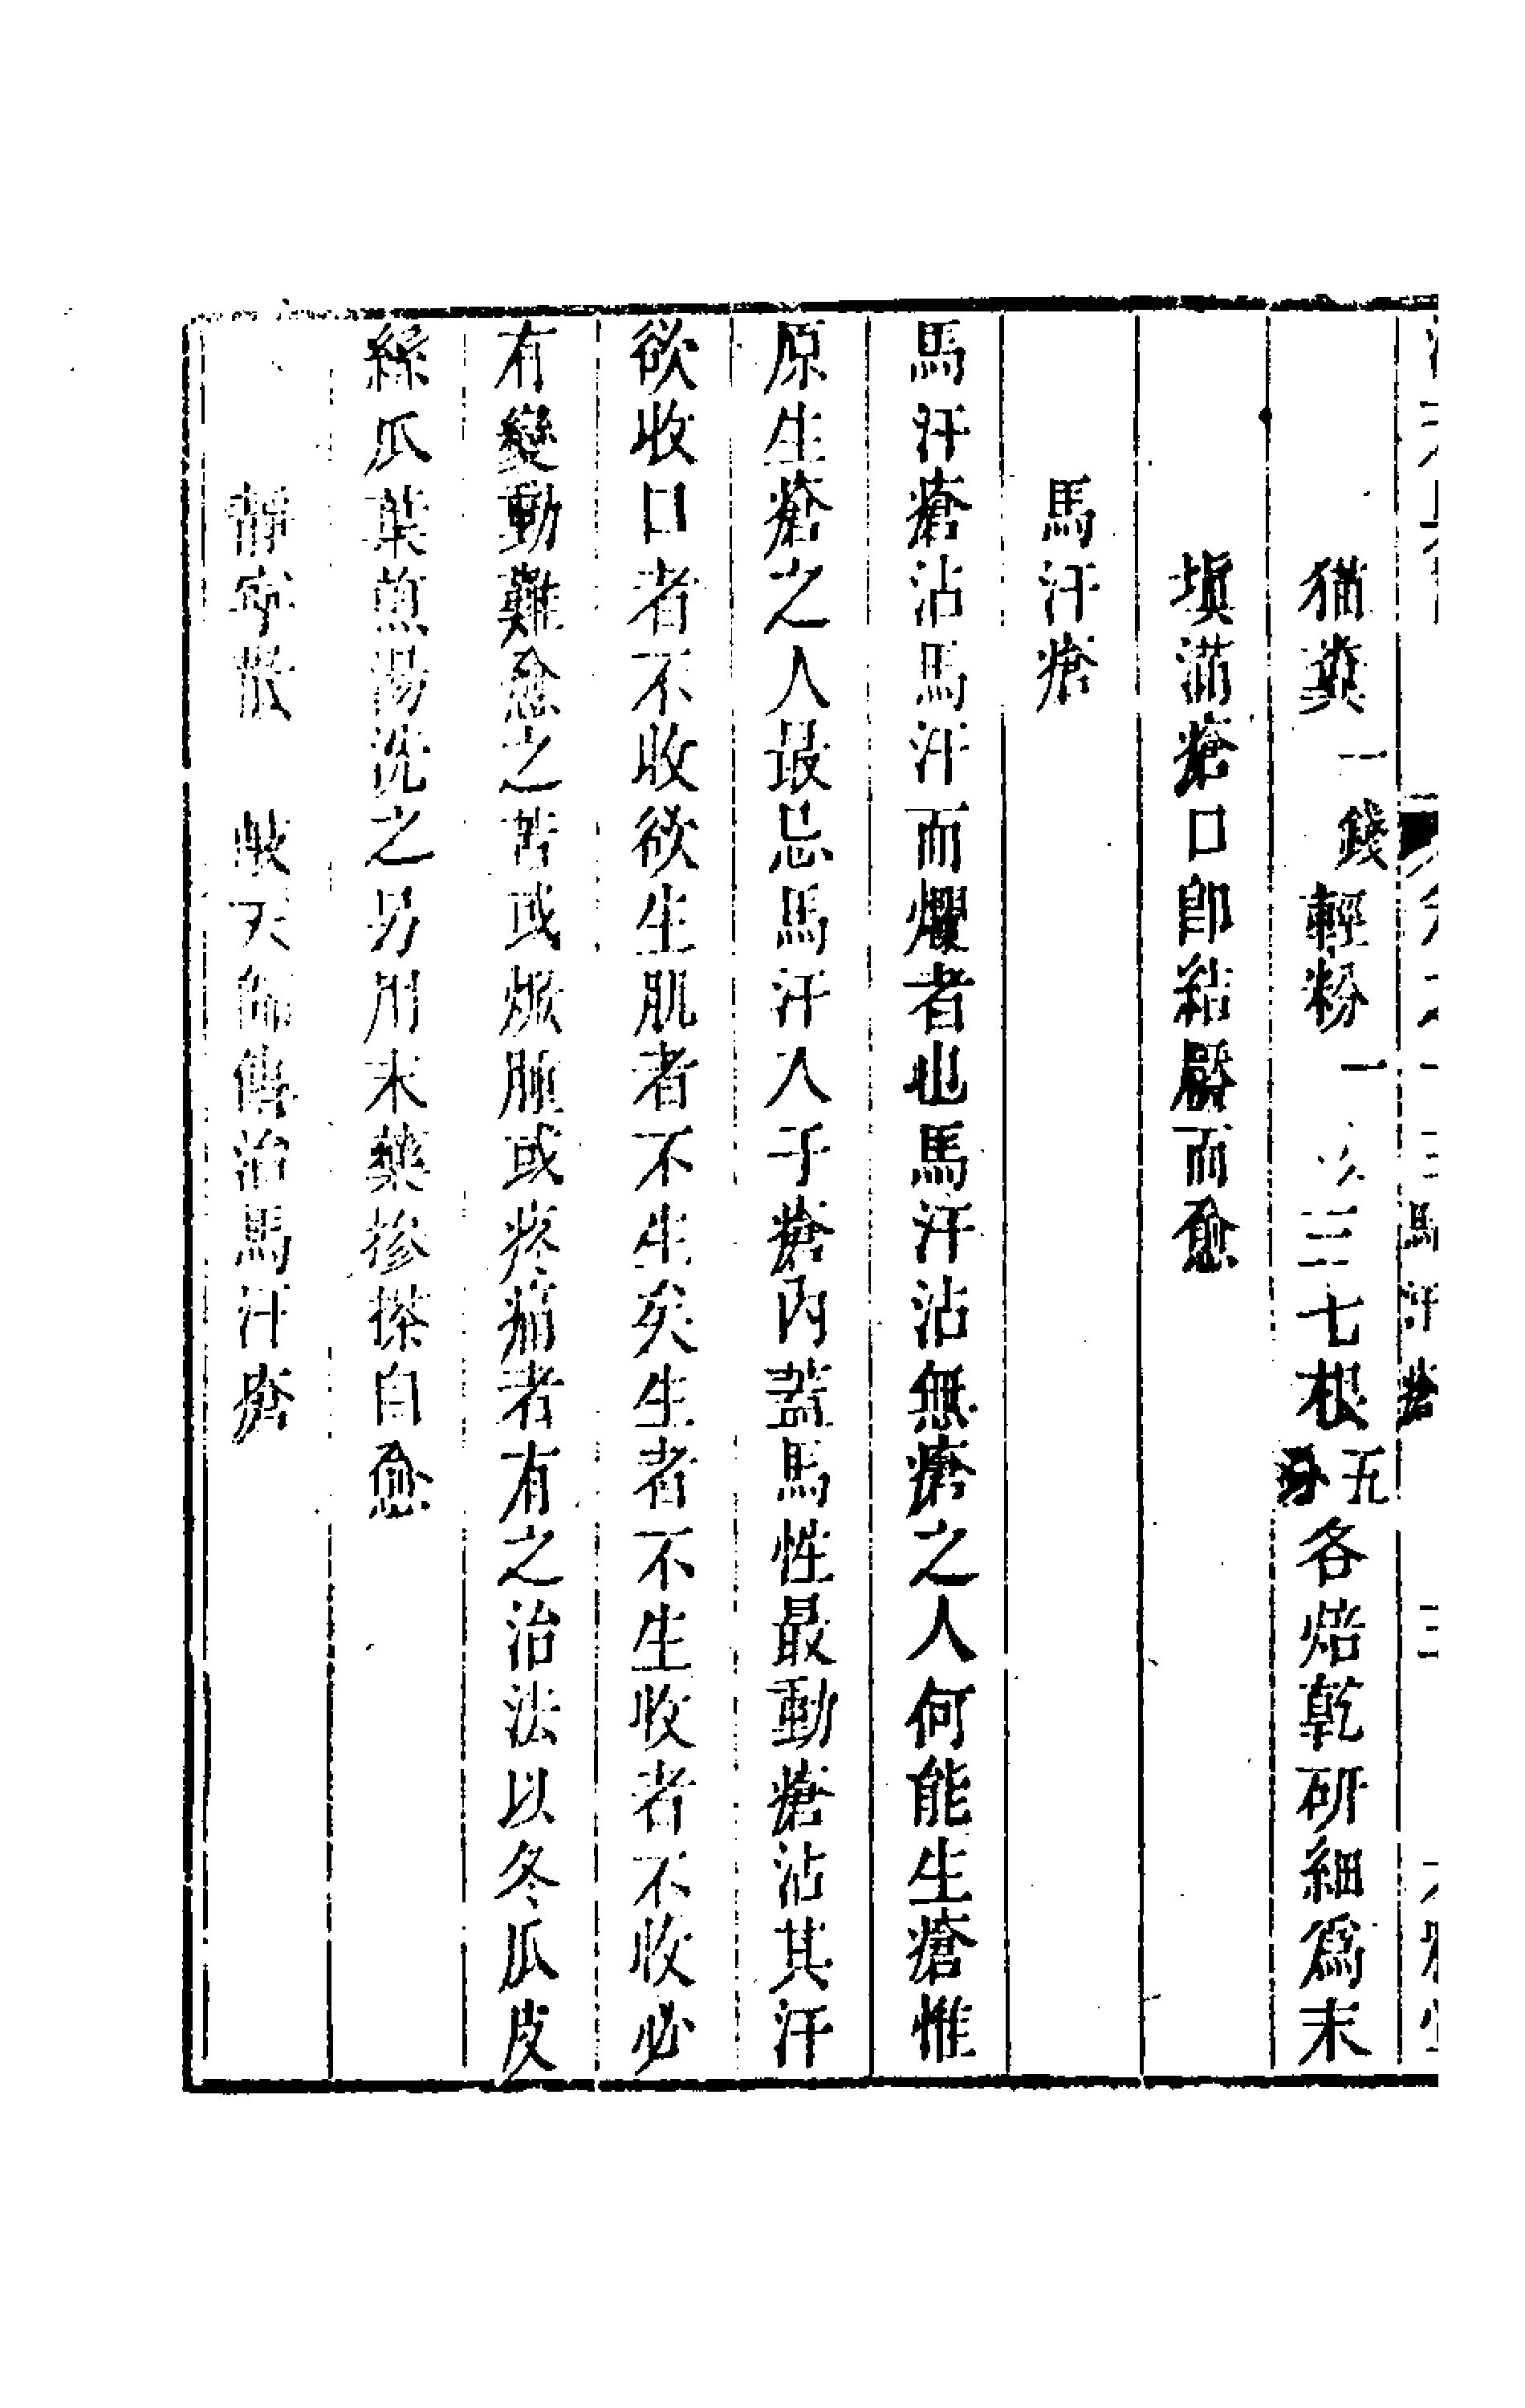 馬汗瘡
猫糞一錢輕粉一三七根五分各焙乾研細為末
塡滿瘡口卽結靨而愈
馬汗瘡
馬汗瘡沾馬汗而爛者也馬汗沾無瘡之人何能生瘡惟
原生瘡之人最忌馬汗入于瘡內蓋馬性最動瘡沾其汗
欲收口者不收欲生肌者不生矣生者不生收者不收必
有變動難愈之苦或焮腫或疼痛者有之治法以冬瓜皮
絲瓜葉煎湯洗之另用末藥摻搽自愈
靜寧散 岐天師傳治馬汗瘡